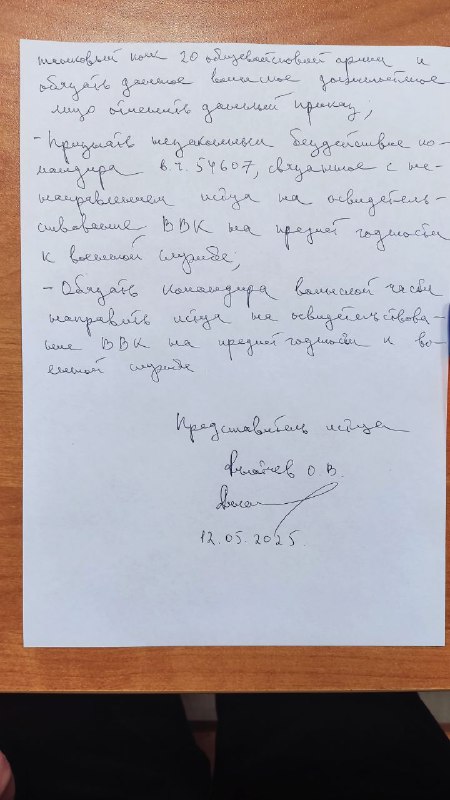 полк 20 общевойсковой армии и
обязать данное воинское должностное
лицо отменить данный приказ;
- Признать незаконным бездействие ко-
мандира в.ч. 54607, связанное с не-
направлением истца на освидетель-
ствование ВВК на предмет годности
к военной службе;
- Обязать командира воинской части
направить истца на освидетельствова-
ние ВВК на предмет годности к во-
енной службе
Представитель истца
О.В.
12.05.2025.